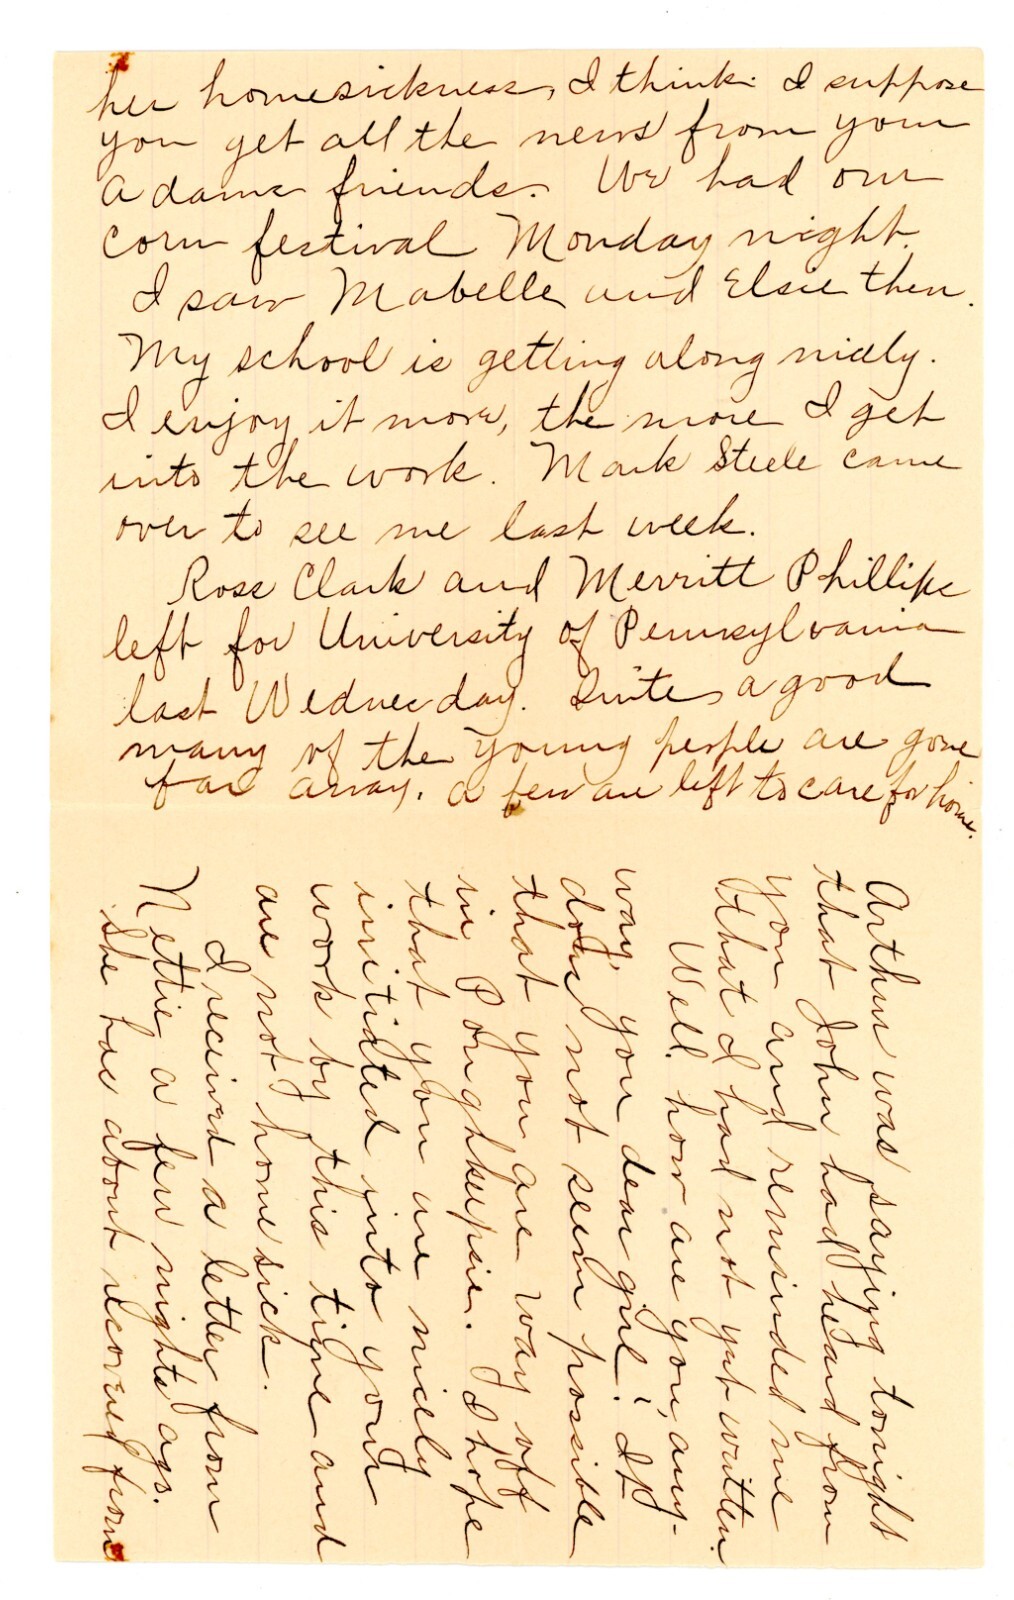 Arthur was saying tonight
that John had heard from
you and reminded me
that I had not yet written.
Well how are you, any-
way, you dear girl! It
does not seem possible
that you are way off
in Poughkeepsie. I hope
that you are nicely
initiated into your
work by this time and
are not homesick.
I received a letter from
Nettie a few nights ago.
She has about recovered from
her homesickness, I think. I suppose
you get all the news from your
Adams friends. We had our
corn festival Monday night.
I saw Mabelle and Elsie then.
My school is getting along nicely.
I enjoy it more, the more I get
into the work. Mark Steele came
over to see me last week.
Ross Clark and Merritt Phillips
left for University of Pennsylvania
last Wednesday. Quite a good
many of the young people are gone
far away. a few are left to care for home.